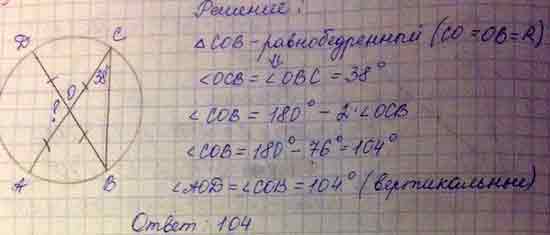 Решение:
△COB - равнобедренный (CO = OB = R)
⇓
∠OCB = ∠OBC = 38°
∠COB = 180° - 2·∠OCB
∠COB = 180° - 76° = 104°
∠AOD = ∠COB = 104° (вертикальные)
Ответ: 104
D
C
38°
O
?
A
B